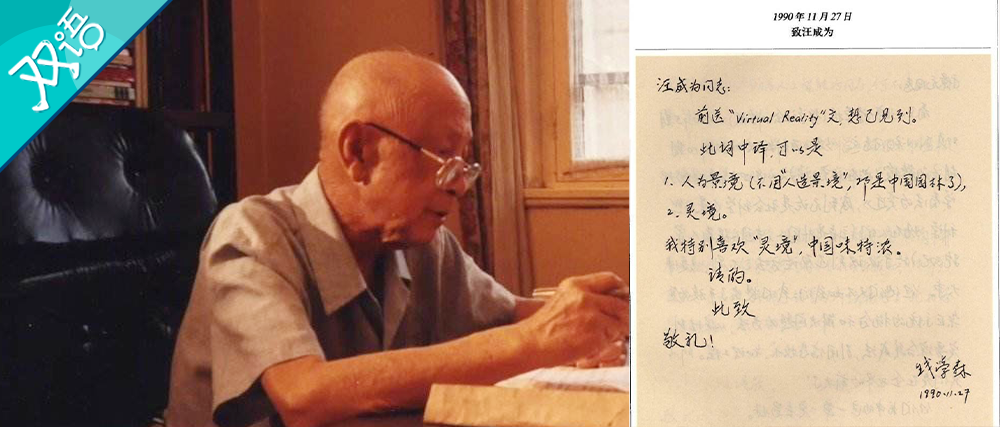 双语
1990年11月27日
致汪成为
汪成为同志：
前送“Virtual Reality”文想已见到。
此词中译，可以是
1. 人为景境（不用“人造景境”，那是中国园林了），
2. 灵境。
我特别喜欢“灵境”中国味特浓。
请酌。
此致
敬礼！
钱学森
1990.11.27